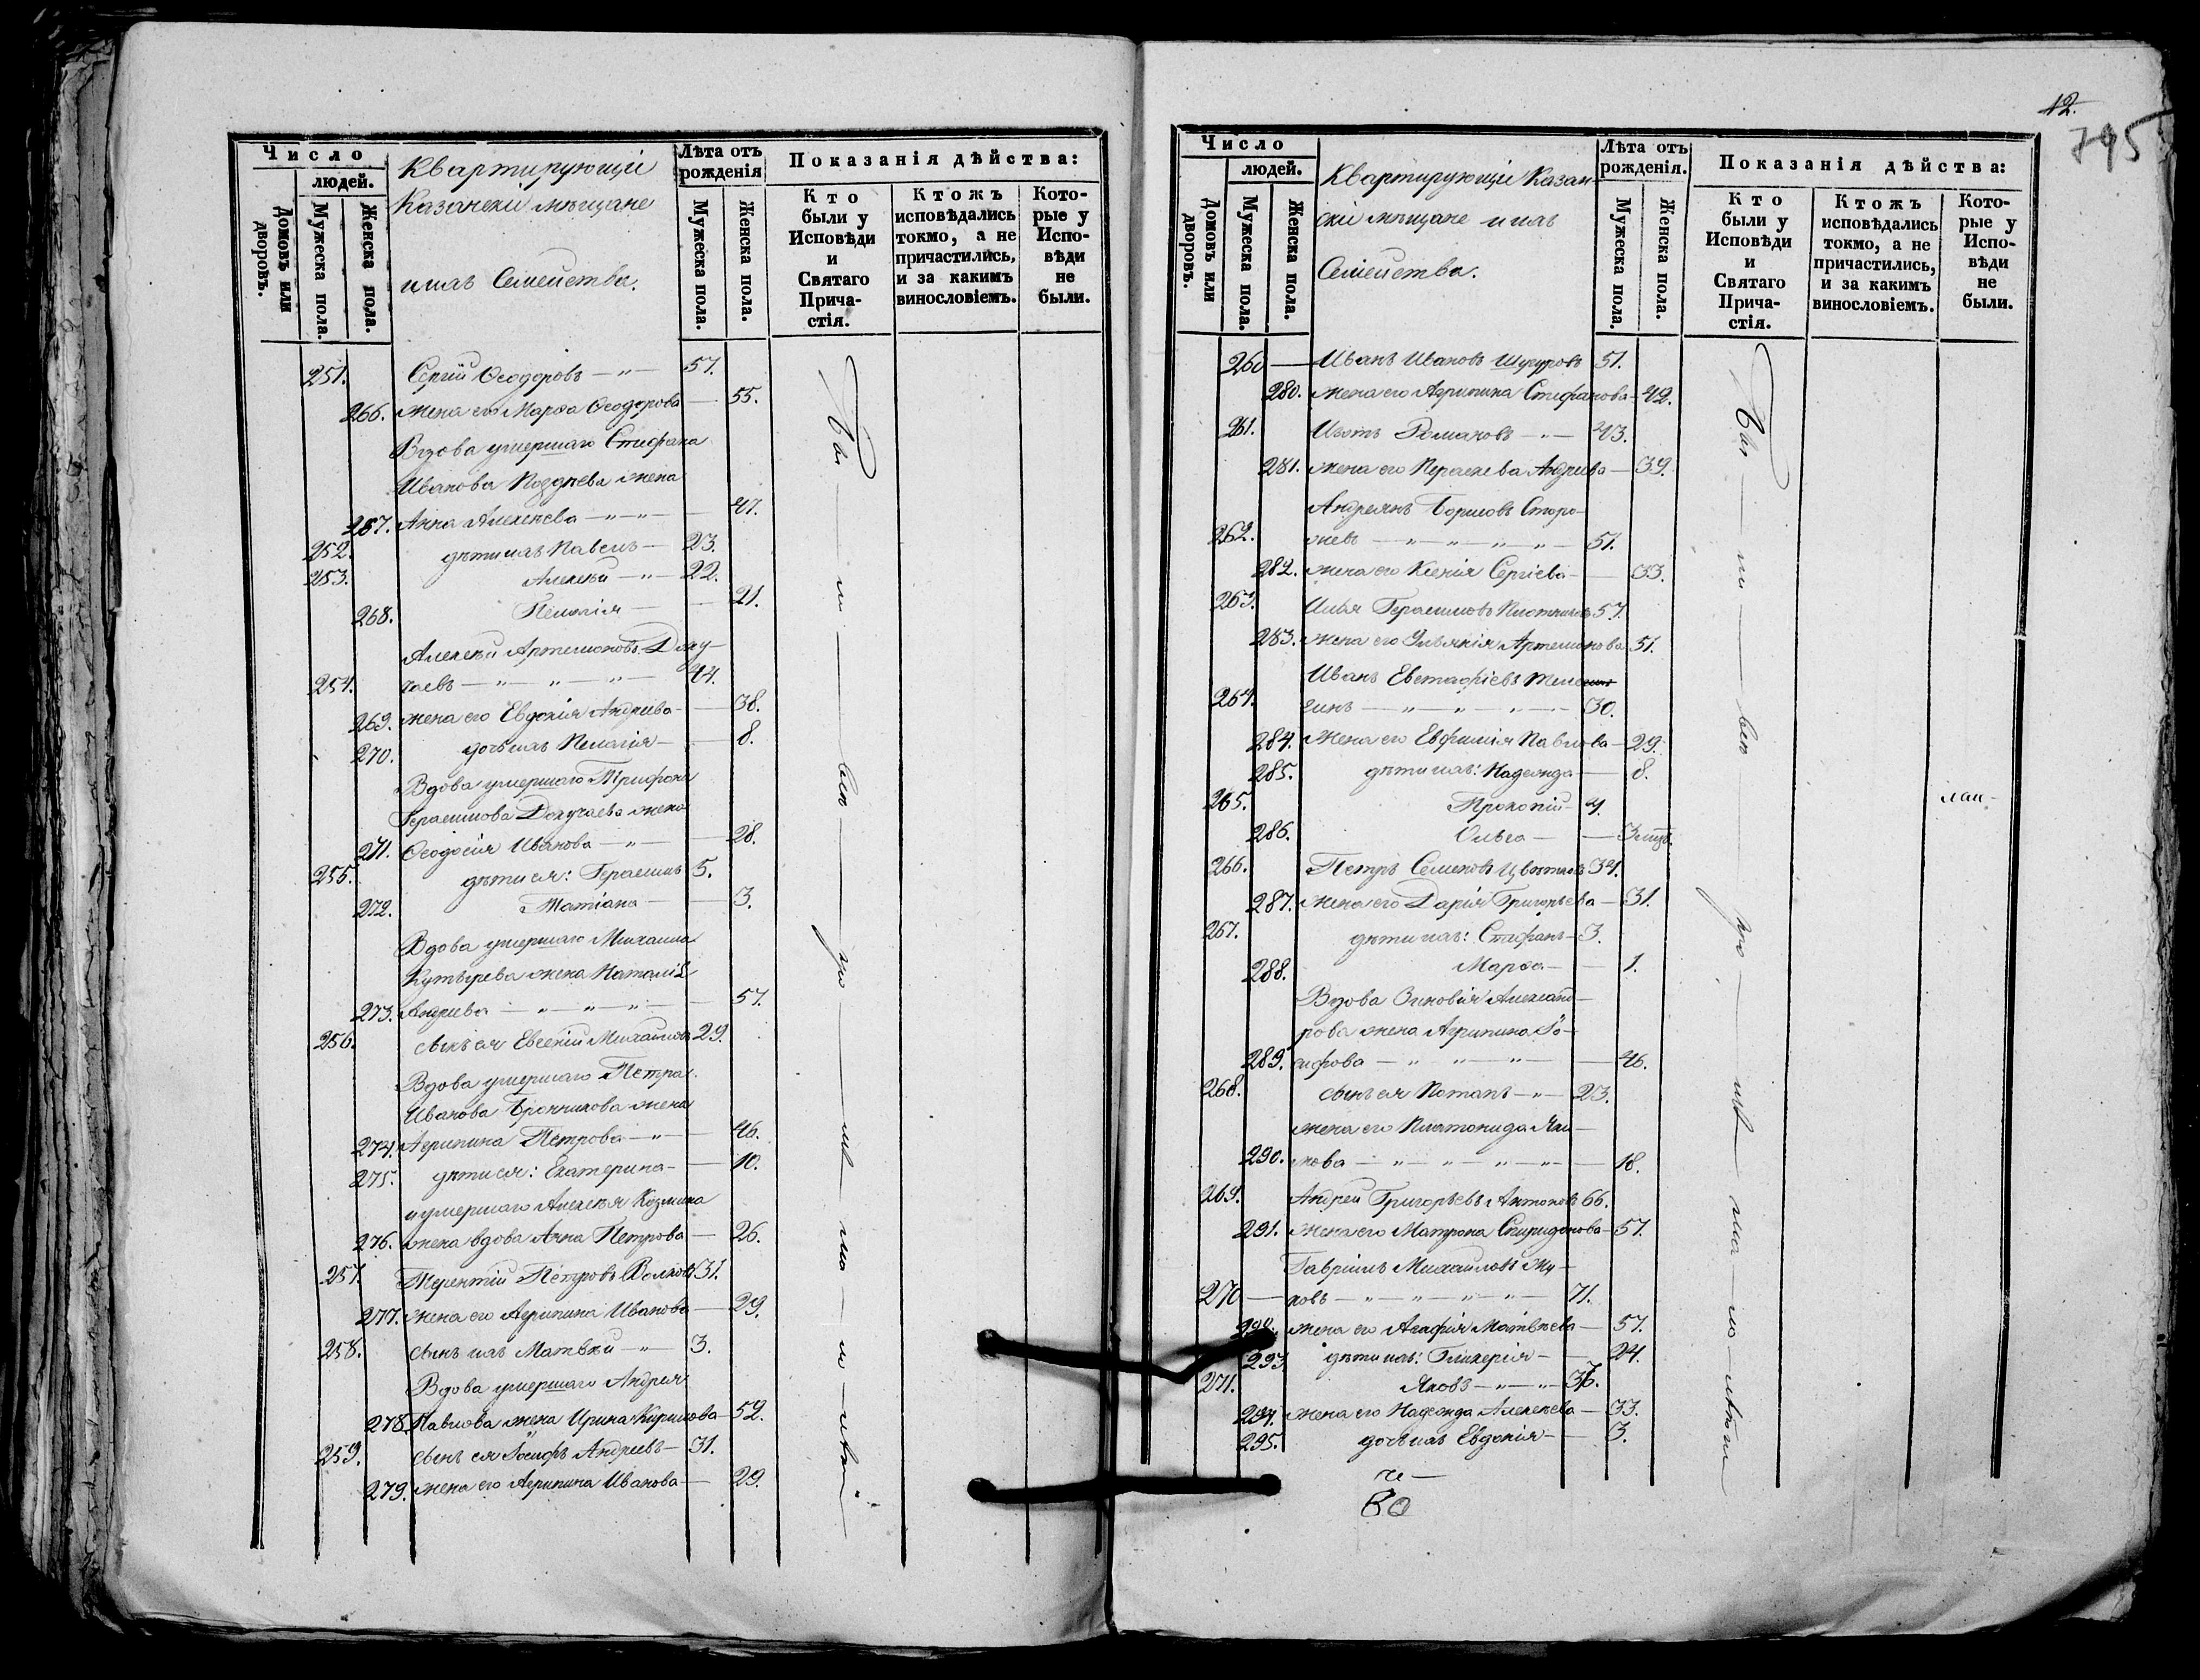 Число
людей.
Домовъ или дворовъ.
Мужеска пола.
Женска пола.
Квартирующіе
Казанскіе мѣщане
и ихъ Семейства.
Лѣта отъ рожденія
Мужеска пола.
Женска пола.
Показанія дѣйства:
Кто были у Исповѣди и Святаго Прича-стія.
Ктожъ исповѣдались токмо, а не причастились, и за какимъ винословіемъ.
Кото-рые у Испо-вѣди не были.
251. Сергій Ѳеодоровъ — „ — 57.
266. жена его Марѳа Ѳеодорова — 55.
Вдова умершаго Стефана
Иванова Позднева жена
267. Анна Алексеева — „ — „ — 47.
252. дѣти ихъ Павелъ — 23.
253. Алексѣй — „ — 22.
268. Пелагія — 21.
Алексѣй Артемоновъ Доку-
254. чаевъ — „ — „ — „ — 44.
269. жена его Евдокія Андреева — 38.
270. дочь ихъ Пелагія — 8.
Вдова умершаго Трифона
Герасимова Докучаева жена
271. Ѳеодосія Иванова — „ — 28.
255. дѣти ея: Герасимъ 5.
272. Татіана — 3.
Вдова умершаго Михаила
Кутырева жена Наталія
273. Андреева — „ — „ — „ — 57.
256. сынъ ея Евгеній Михайловъ 29.
Вдова умершаго Петра
Иванова Бронникова жена
274. Агрипина Петрова — „ — 46.
275. дѣти ея: Екатерина — 10.
и умершаго Алексѣя Козмина
276. жена вдова Анна Петрова — 26.
257. Терентій Петровъ Волковъ 31.
277. жена его Агрипина Иванова — 29.
258. сынъ ихъ Матвѣй — „ — 3.
Вдова умершаго Андрея
278. Павлова жена Ирина Кирилова — 52.
259. сынъ ея Іосифъ Андреевъ — 31.
279. жена его Агрипина Иванова — 29.
12.
795
Число
людей.
Домовъ или дворовъ.
Мужеска пола.
Женска пола.
Квартирующіе Казан-
скіе мѣщане и ихъ
Семейства.
Лѣта отъ рожденія.
Мужеска пола.
Женска пола.
Показанія дѣйства:
Кто были у Исповѣди и Святаго Прича-стія.
Ктожъ исповѣдались токмо, а не причастились, и за какимъ винословіемъ.
Кото-рые у Испо-вѣди не были.
260 — Иванъ Ивановъ 51.
280. жена его Агрипина Стефанова — 42.
261. Изотъ Романовъ — „ — 43.
281. жена его Параскева Андреева — 39.
Андреянъ Борисовъ Сторо-
262. жевъ — „ — „ — „ — „ — 51.
282. жена его Ксенія Сергіева — 33.
263. Илья Герасимовъ Плотниковъ 57.
283. жена его Ульянія Артемонова 51.
Иванъ Евстафіевъ Теле
264. гинъ — „ — „ — „ — 30.
284. жена его Евфимія Павлова — 29.
285. дѣти ихъ: Надежда — 8.
265. Прокопій — 4.
286. Ольга — 3 мѣц.
266. Петръ Семеновъ Цвѣтковъ 34.
287. жена его Дарія Григорьева — 31.
267. дѣти ихъ: Стефанъ — 3.
288. Марѳа — 1.
Вдова Зиновія Александ-
рова жена Агрипина Іо-
289. сифова — „ — „ — „ — 46.
268. сынъ ея Потапъ — „ — 23.
жена его Платонида Яки-
290. мова — „ — „ — „ — „ — 18.
269. Андрей Григорьевъ Антоновъ 66.
291. жена его Матрона Спиридонова — 57.
Гавріилъ Михайловъ Жу-
270 — ковъ — „ — „ — „ — „ — 71.
292. жена его Агафія Матвѣева — 57.
293 дѣти ихъ: Гликерія — 24.
271. Яковъ — „ — „ — 36.
294. жена его Надежда Алексеева — 33.
295. дочь ихъ Евдокія — 3.